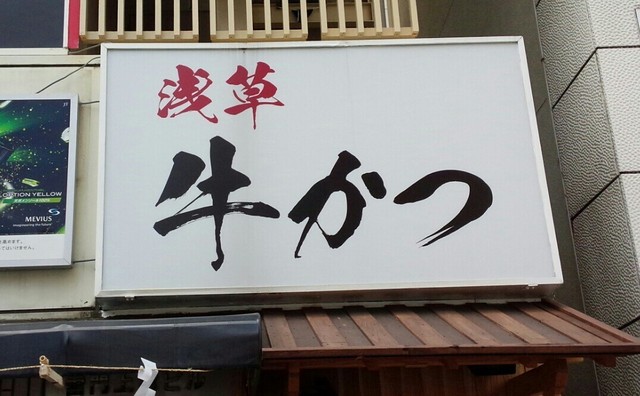 浅草
牛かつ
OPTION YELLOW
MEVIUS